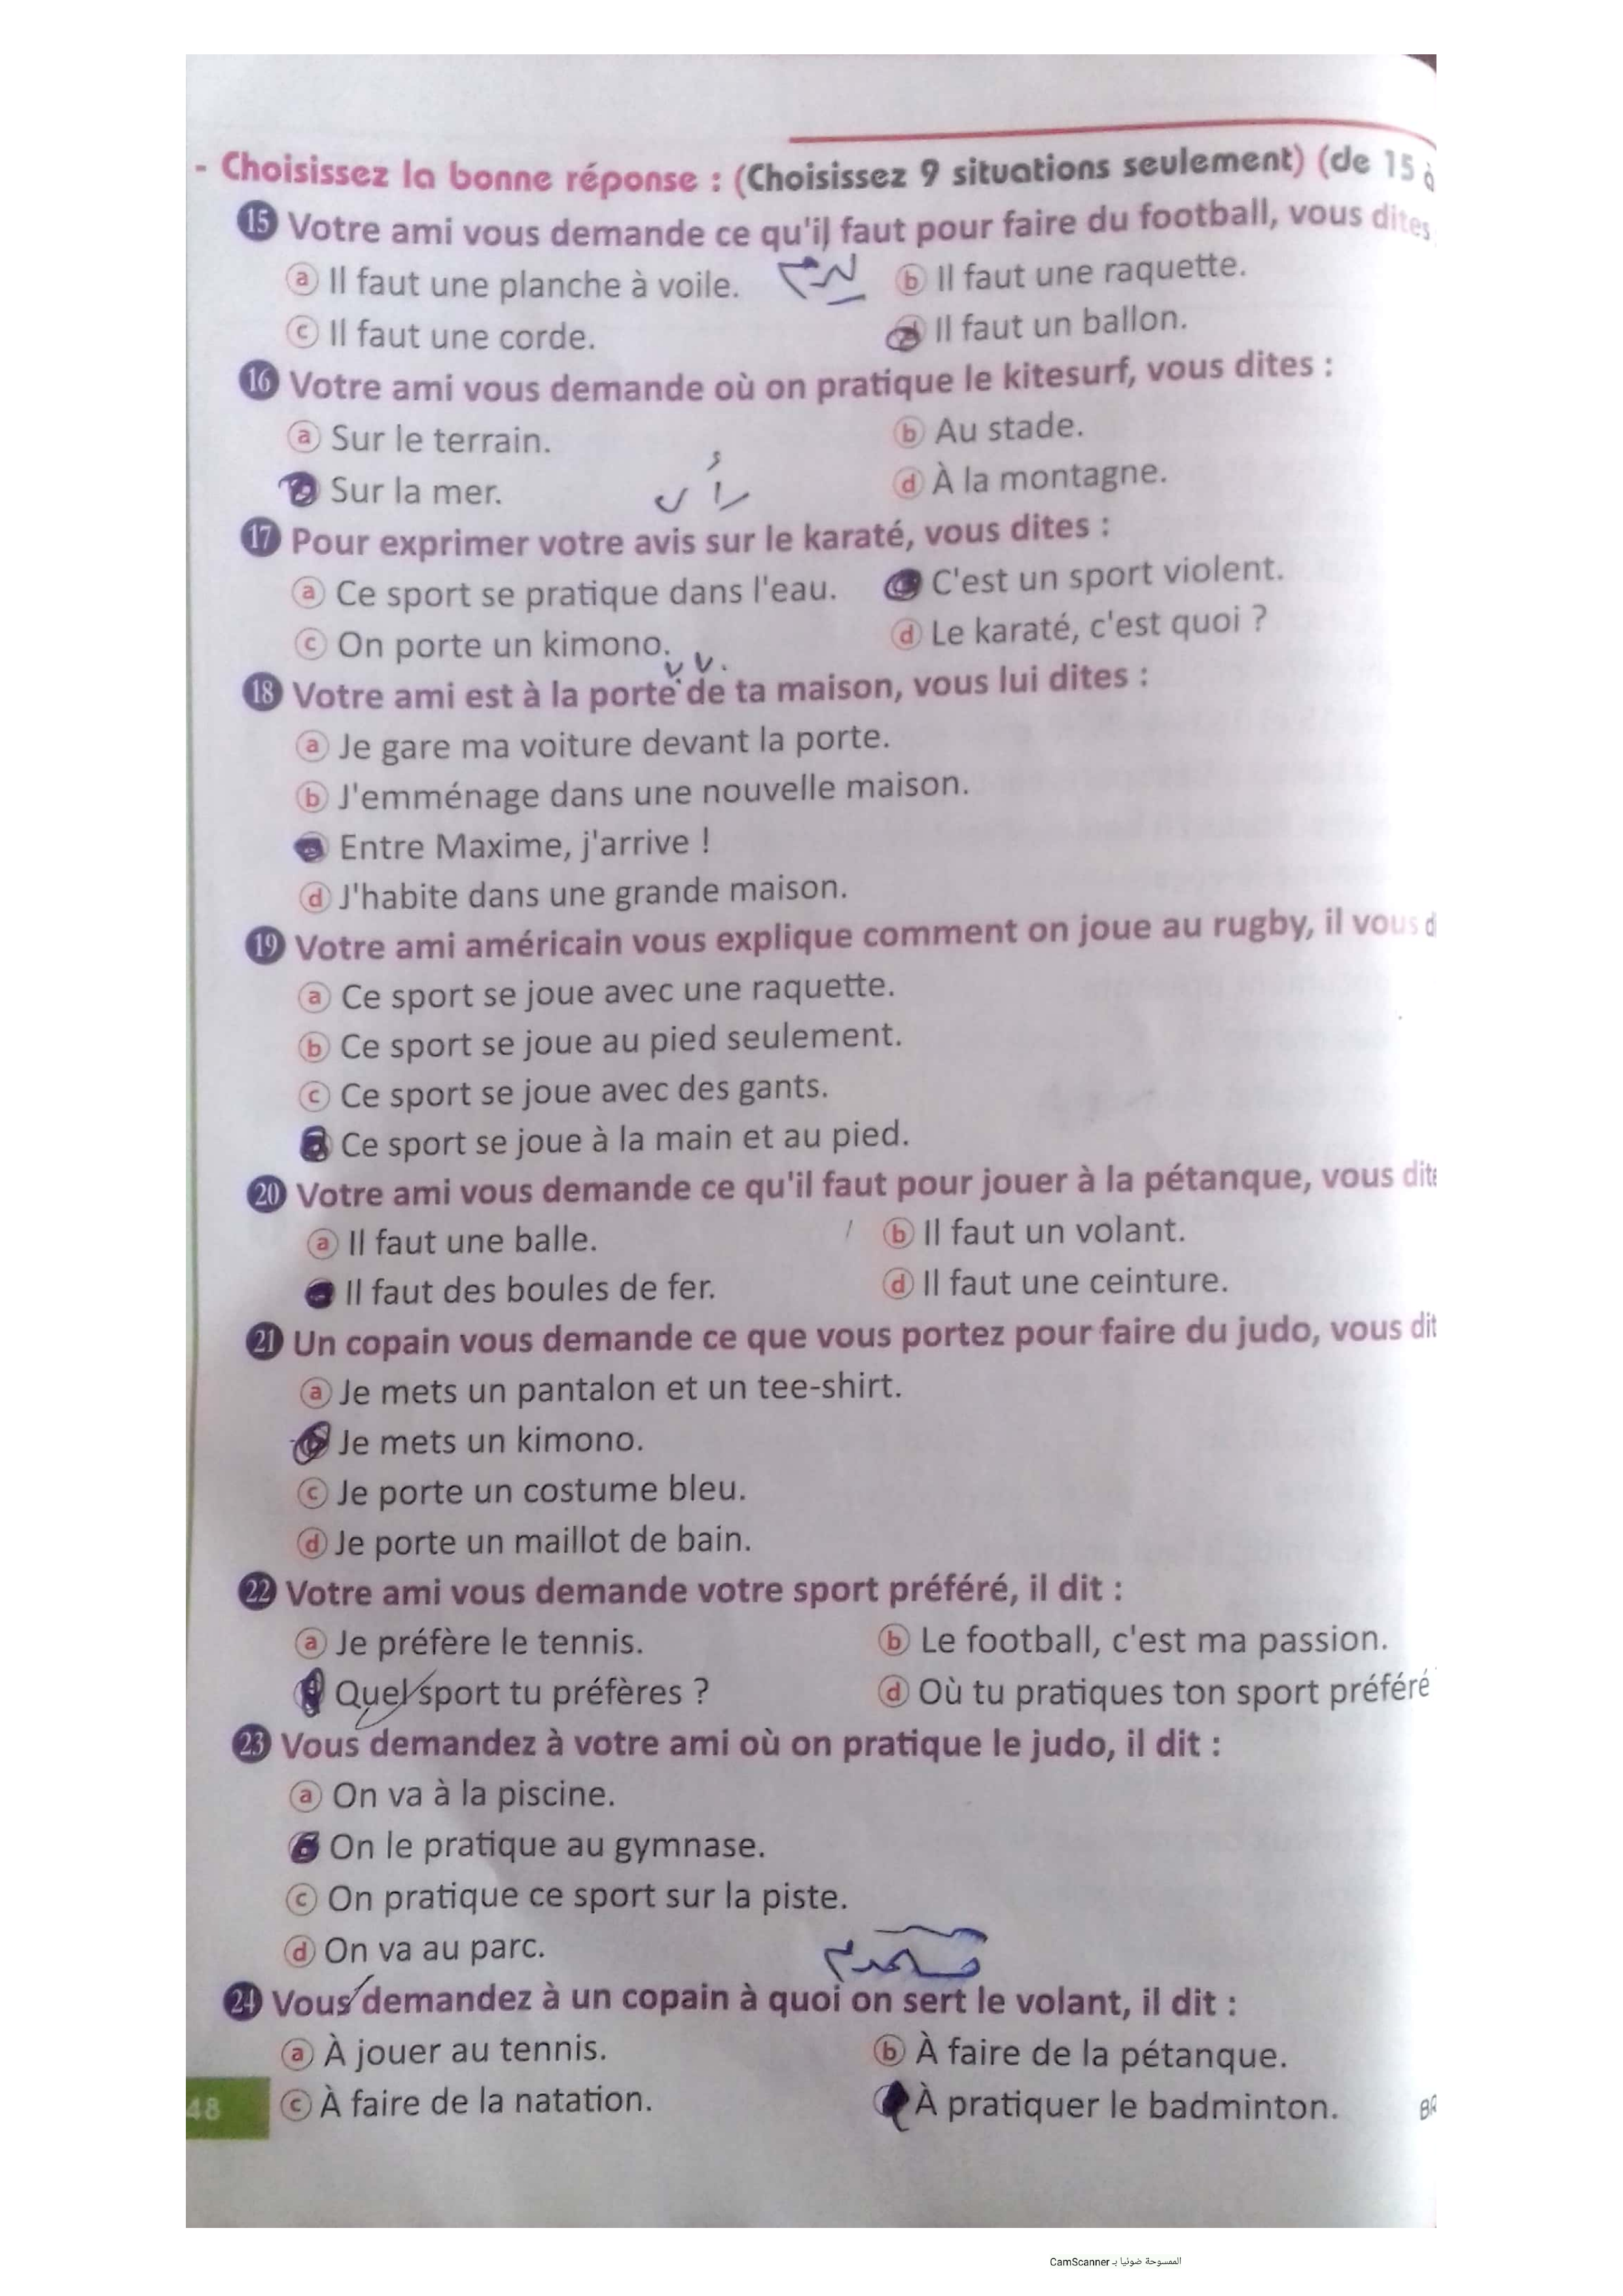 - Choisissez la bonne réponse : (Choisissez 9 situations seulement) (de 15 à
15 Votre ami vous demande ce qu'il faut pour faire du football, vous dites
a Il faut une planche à voile. b Il faut une raquette.
c Il faut une corde. d Il faut un ballon.
16 Votre ami vous demande où on pratique le kitesurf, vous dites :
a Sur le terrain. b Au stade.
Sur la mer. d À la montagne.
17 Pour exprimer votre avis sur le karaté, vous dites :
a Ce sport se pratique dans l'eau. C'est un sport violent.
c On porte un kimono. d Le karaté, c'est quoi ?
18 Votre ami est à la porte de ta maison, vous lui dites :
a Je gare ma voiture devant la porte.
b J'emménage dans une nouvelle maison.
Entre Maxime, j'arrive !
d J'habite dans une grande maison.
19 Votre ami américain vous explique comment on joue au rugby, il vous d
a Ce sport se joue avec une raquette.
b Ce sport se joue au pied seulement.
c Ce sport se joue avec des gants.
Ce sport se joue à la main et au pied.
20 Votre ami vous demande ce qu'il faut pour jouer à la pétanque, vous dite
a Il faut une balle. b Il faut un volant.
Il faut des boules de fer. d Il faut une ceinture.
21 Un copain vous demande ce que vous portez pour faire du judo, vous dit
a Je mets un pantalon et un tee-shirt.
Je mets un kimono.
c Je porte un costume bleu.
d Je porte un maillot de bain.
22 Votre ami vous demande votre sport préféré, il dit :
a Je préfère le tennis. b Le football, c'est ma passion.
Quel sport tu préfères ? d Où tu pratiques ton sport préféré
23 Vous demandez à votre ami où on pratique le judo, il dit :
a On va à la piscine.
On le pratique au gymnase.
c On pratique ce sport sur la piste.
d On va au parc.
24 Vous demandez à un copain à quoi on sert le volant, il dit :
a À jouer au tennis. b À faire de la pétanque.
c À faire de la natation. À pratiquer le badminton.
48
الممسوحة ضوئيا بـ CamScanner